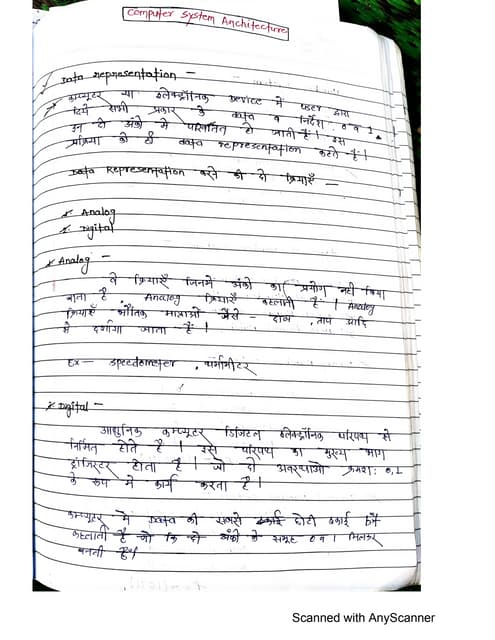 Computer System Architecture
Data Representation —
कम्प्यूटर या इलेक्ट्रॉनिक Device में user द्वारा
दिये सभी प्रकार के data व निर्देश, 0 व 1
उन दो अंको में परिवर्तित हो जाती है। इस
प्रक्रिया को ही data representation कहते है।
Data Representation करने की दो क्रियाएँ —
* Analog
* Digital
* Analog —
वे क्रियाएँ जिनमें अंको का प्रयोग नही किया
जाता है. Analog क्रियाएँ कहलाती है। Analog
क्रियाएँ भौतिक मात्राओ जैसे - दाब, ताप आदि
में दर्शाया जाता है।
Ex — speedometer, थर्मामीटर
* Digital —
आधुनिक कम्प्यूटर डिजिटल इलेक्ट्रॉनिक परिपथ से
निर्मित होते है। इस परिपथ का मुख्य भाग
ट्रांजिस्टर होता है। जो दो अवस्थाओ क्रमश: 0,1
के रूप में कार्य करता है।
कम्प्यूटर में Data की सबसे छोटी इकाई बिट
कहलाती है जो कि दो अंको के समूह 0 व 1 मिलकर
बनती है।
Scanned with AnyScanner